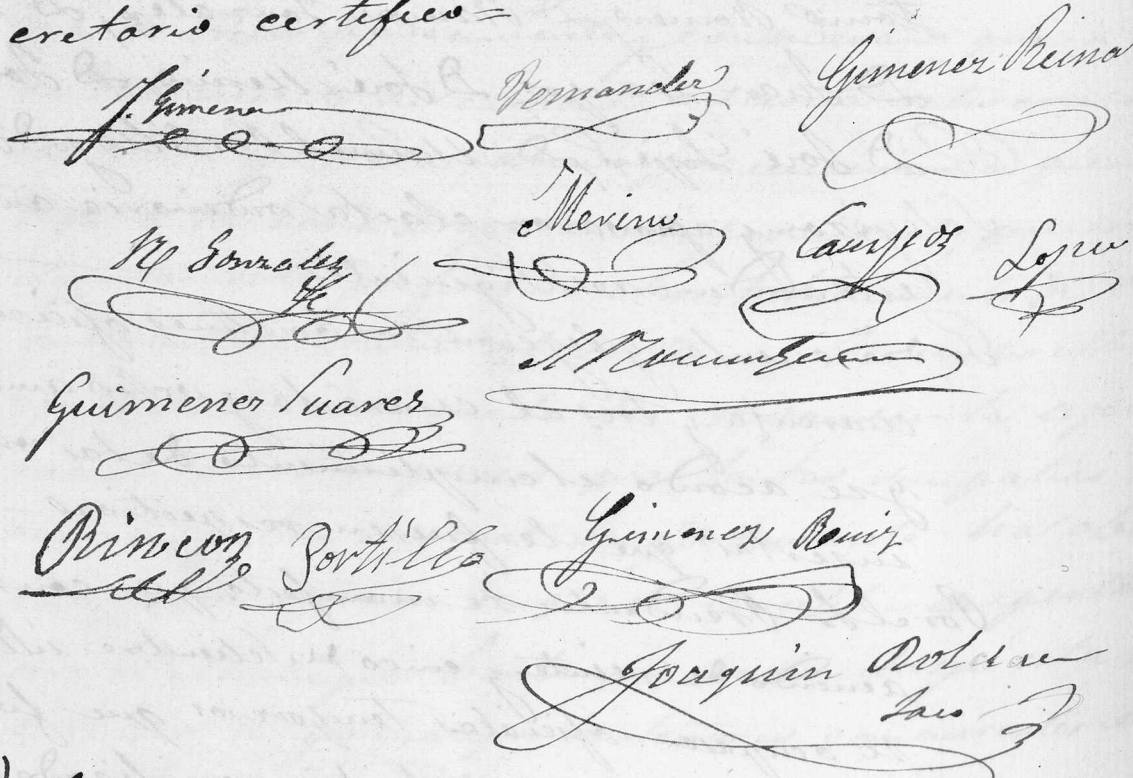 cretario certifico=
J. Gimena
Fernandez
Gimenez Reina
M Gonzalez
Merino
Campos
Lopez
A
Guimenez Suarez
Rincon
Portillo
Gimenez Ruiz
Joaquin Roldan